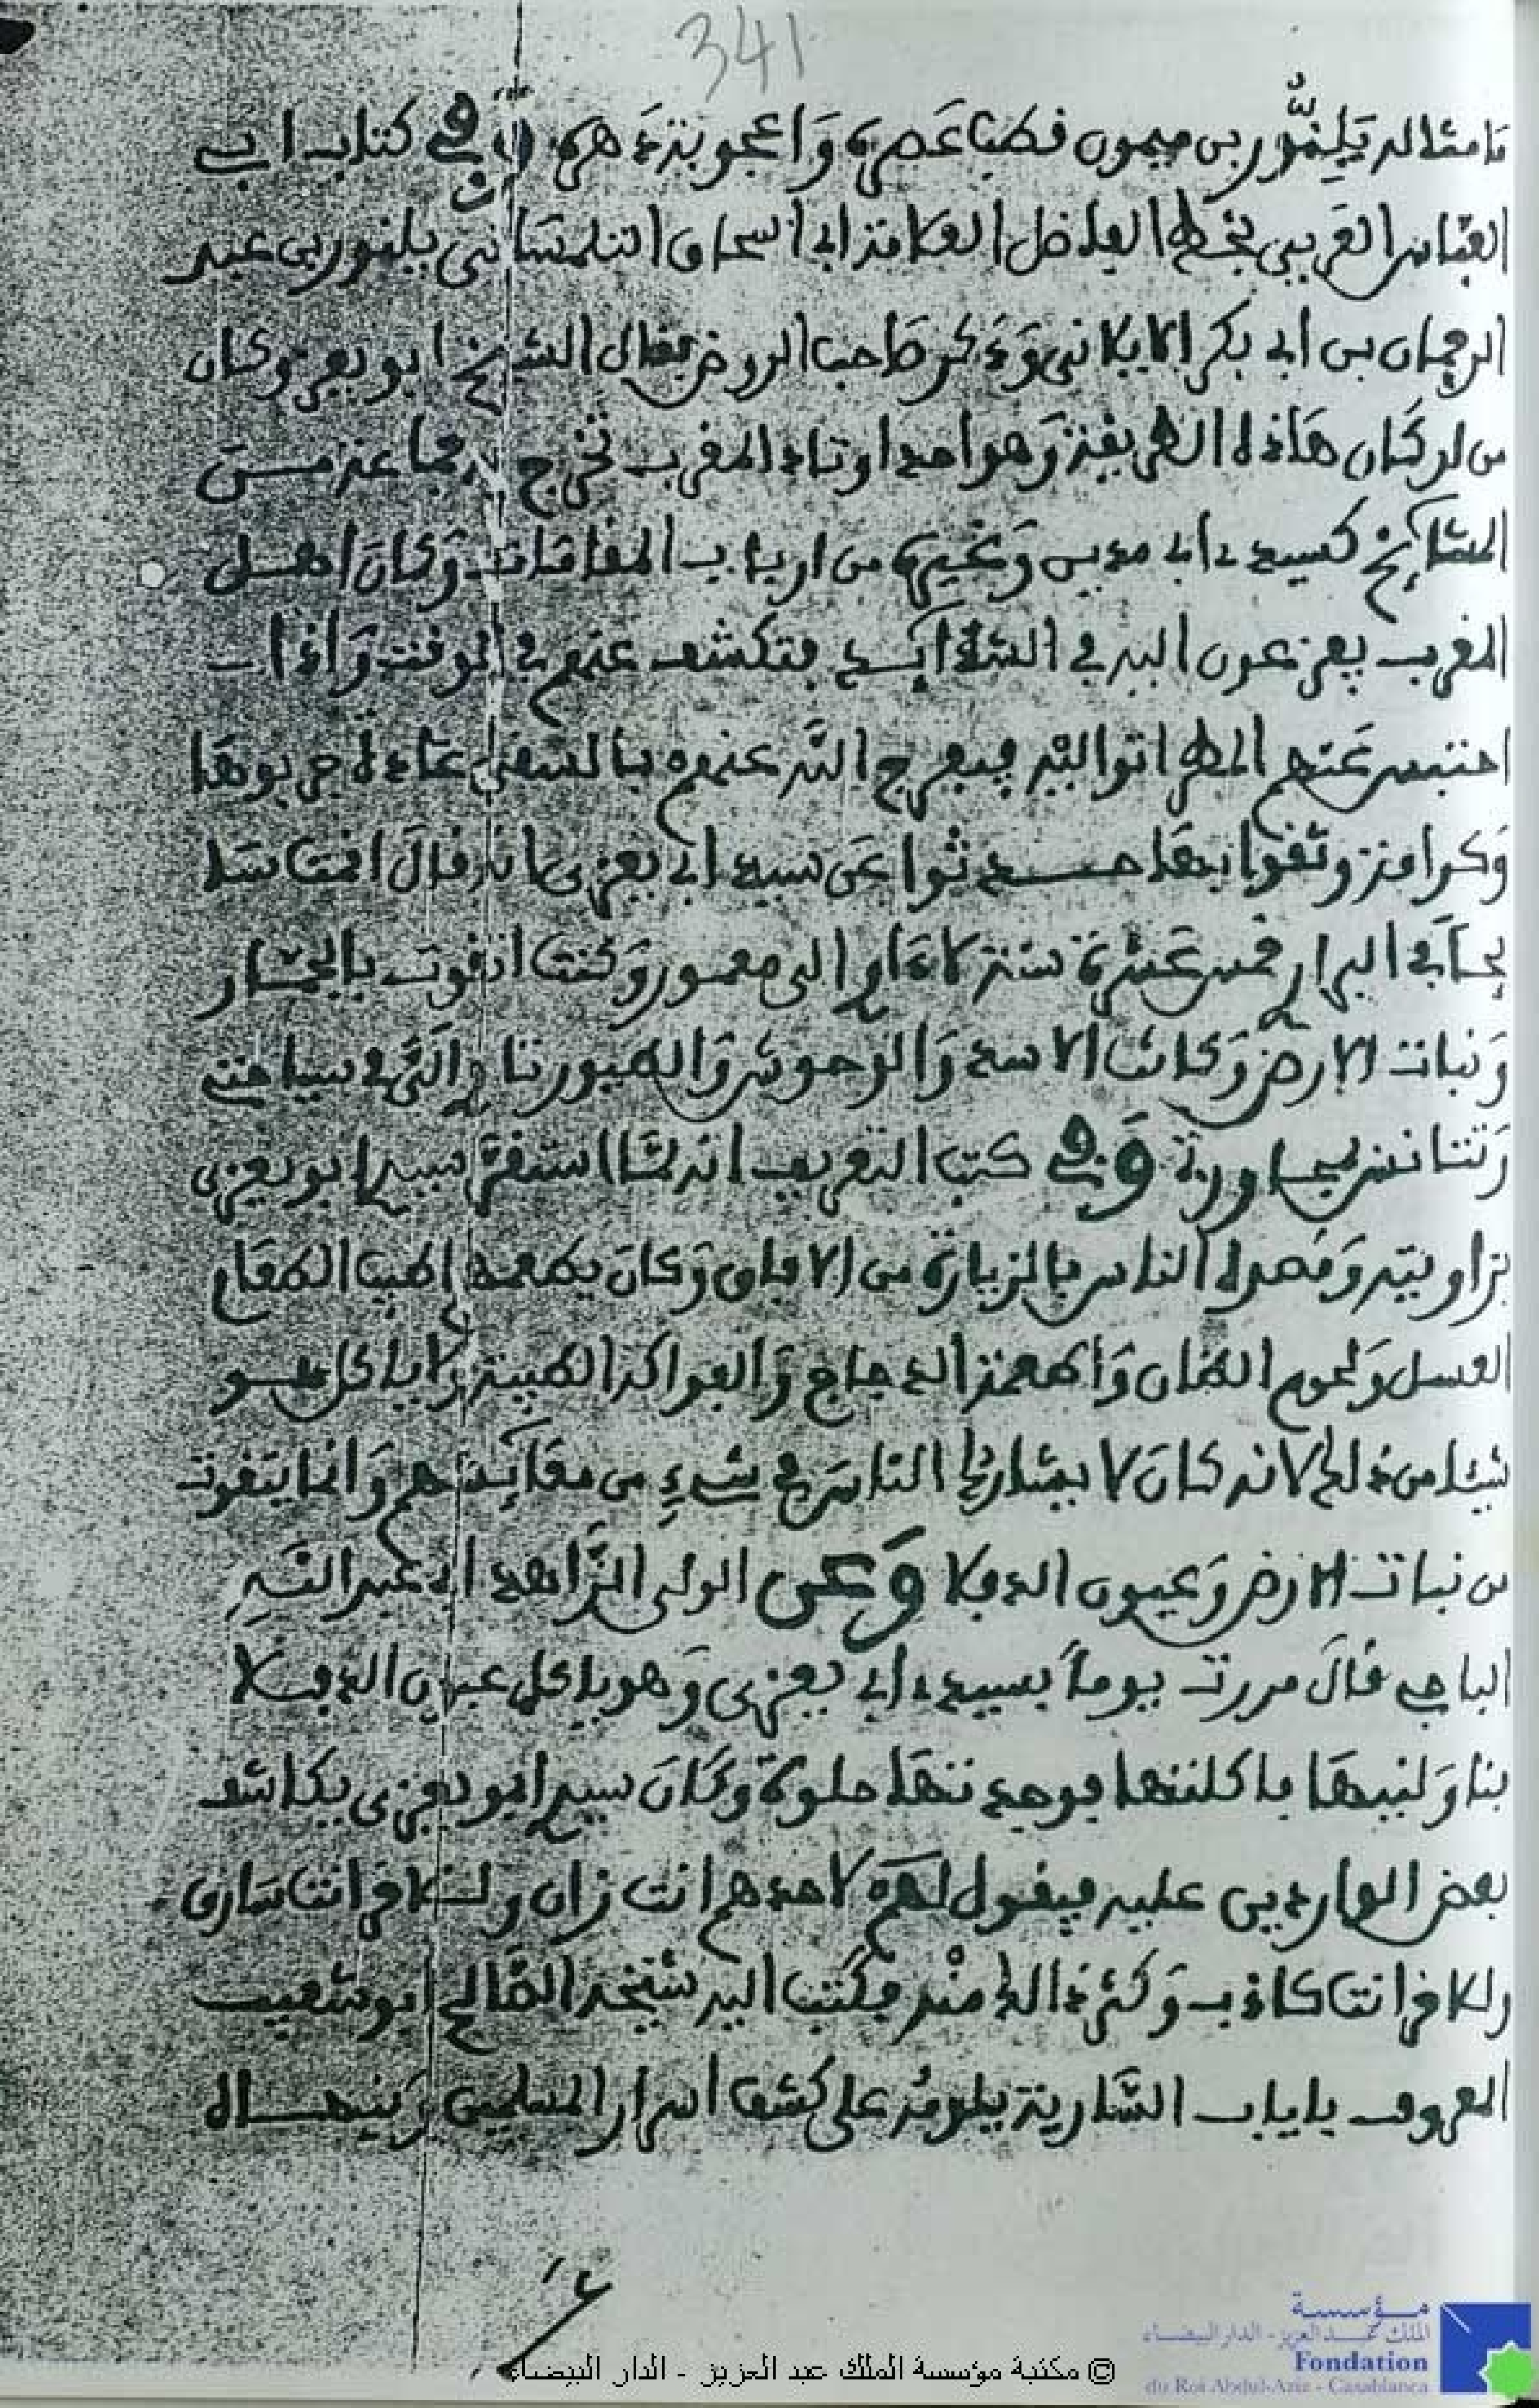 341
بامثاله يلنور بن ميمون قطب عصره وأعجوبة دهره وفي كتاب ابي
العباس العزبي بخط الفاضل العلامة ابي اسحاق التلمساني يلنور بن عبد
الرحمان بن ابي بكر الايلاني وذكر صاحب الروض فقال الشيخ ابو يعزى كان
من اركان هاذه الطريقة وهو احد اوتاد المغرب تخرج به جماعة من
المشايخ كسيدي ابي مدين وغيره من ارباب المقامات وكان اهل
المغرب يفزعون اليه في الشدائد فتكشف عنهم في الوقت وإذا
احتبس عنهم المطر اتوا اليه فيفرج الله عنهم بالسقي عادة جربوها
وكرامة وثقوا بها حدثوا عن سيدي ابي يعزى انه قال اقمت سا
يحا في البراري خمس عشرة سنة لا ءاوي الى معمور وكنت اتقوت بالجمار
ونبات الارض وكانت الاسد والوحوش والطيور تاوي إلي في سياحتي
وتتانس بمجاورتي وفي كتب التعريف انه لما استقر سيدي ابو يعزى
بزاويته وقصده الناس بالزيارة من الافاق وكان يطعمهم اطيب الطعام
العسل ولحوم الضان وأطعمة الدجاج والفواكه الطيبة ولا ياكل هو
شيئا من ذلك لانه كان لا يشارك الناس في شيء من معايشهم وانما يتقوت
من نبات الارض وعيون الدفلا وعن الولي الزاهد ابي عبد الله
الباجي قال مررت يوما بسيدي ابي يعزى وهو ياكل عيون الدفلا
فناولنيها فاكلتها فوجدتها حلوة وكان سيدي ابو يعزى يكاشف
بعض الواردين عليه فيقول لهم لاحدهم انت زان ولآخر انت سارق
ولآخر انت كاذب وكثر ذالك منه فكتب اليه شيخه الصالح ابو شعيب
المعروف باياب السارية يلومه على كشف اسرار المسلمين وينهاه
© مكتبة مؤسسة الملك عبد العزيز - الدار البيضاء
مؤسسة
الملك عبد العزيز - الدار البيضاء
Fondation
du Roi Abdul-Aziz - Casablanca